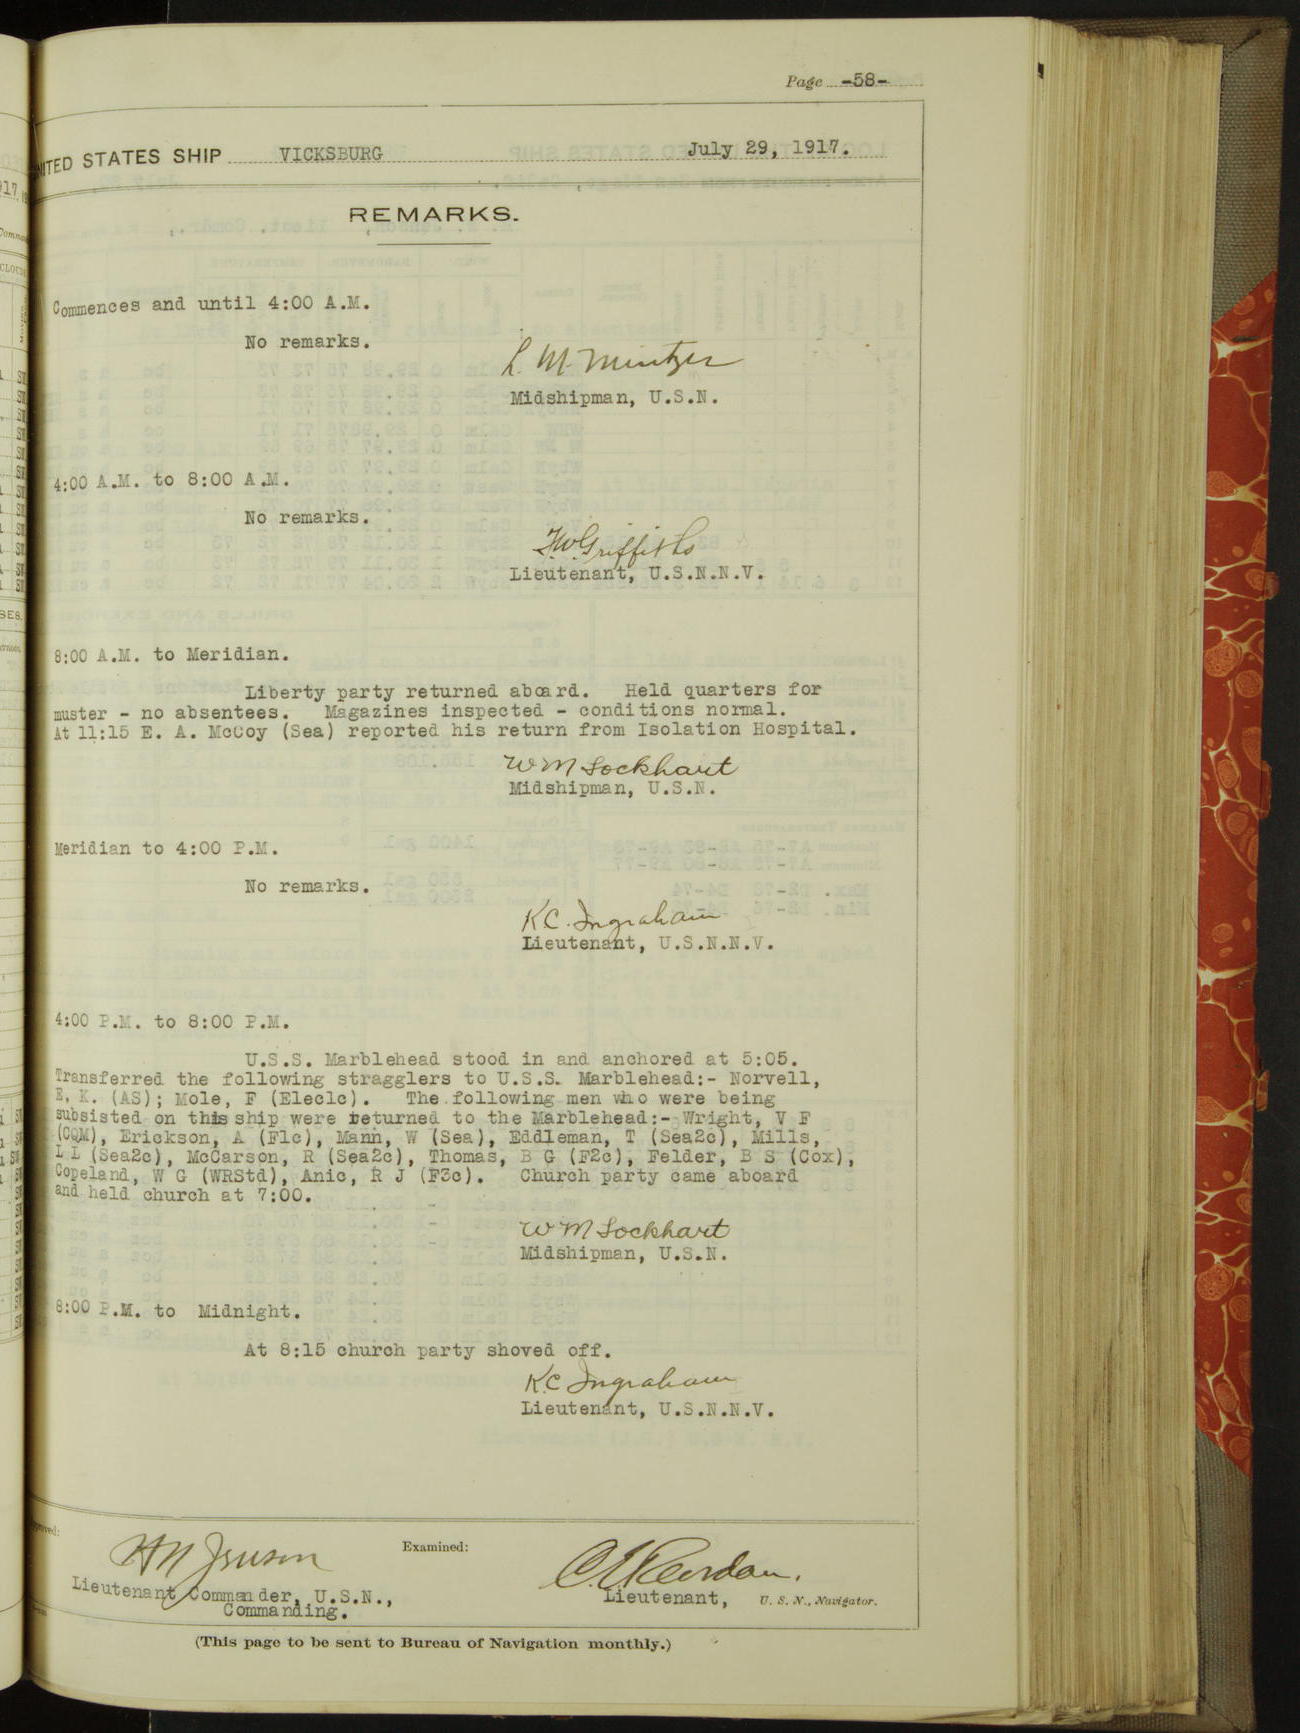 Page -58-
UNITED STATES SHIP VICKSBURG July 29, 1917.
REMARKS.
Commences and until 4:00 A.M.
No remarks.
L. M. Mintzer
Midshipman, U.S.N.
4:00 A.M. to 8:00 A.M.
No remarks.
F.W. Griffiths
Lieutenant, U.S.N.N.V.
8:00 A.M. to Meridian.
Liberty party returned aboard. Held quarters for
muster - no absentees. Magazines inspected - conditions normal.
At 11:15 E. A. McCoy (Sea) reported his return from Isolation Hospital.
W M Lockhart
Midshipman, U.S.N.
Meridian to 4:00 P.M.
No remarks.
K.C. Ingraham
Lieutenant, U.S.N.N.V.
4:00 P.M. to 8:00 P.M.
U.S.S. Marblehead stood in and anchored at 5:05.
Transferred the following stragglers to U.S.S. Marblehead:- Norvell,
E. K. (AS); Mole, F (Elec1c). The following men who were being
subsisted on this ship were returned to the Marblehead:- Wright, V F
(CQM), Erickson, A (F1c), Mann, W (Sea), Eddleman, T (Sea2c), Mills,
L L (Sea2c), McCarson, R (Sea2c), Thomas, B G (F2c), Felder, B S (Cox),
Copeland, W G (WRStd), Anic, R J (F3c). Church party came aboard
and held church at 7:00.
W M Lockhart
Midshipman, U.S.N.
8:00 P.M. to Midnight.
At 8:15 church party shoved off.
K.C. Ingraham
Lieutenant, U.S.N.N.V.
Approved:
Examined:
H N Jenson
Lieutenant Commander, U.S.N.,
Commanding.
Lieutenant, U. S. N., Navigator.
(This page to be sent to Bureau of Navigation monthly.)